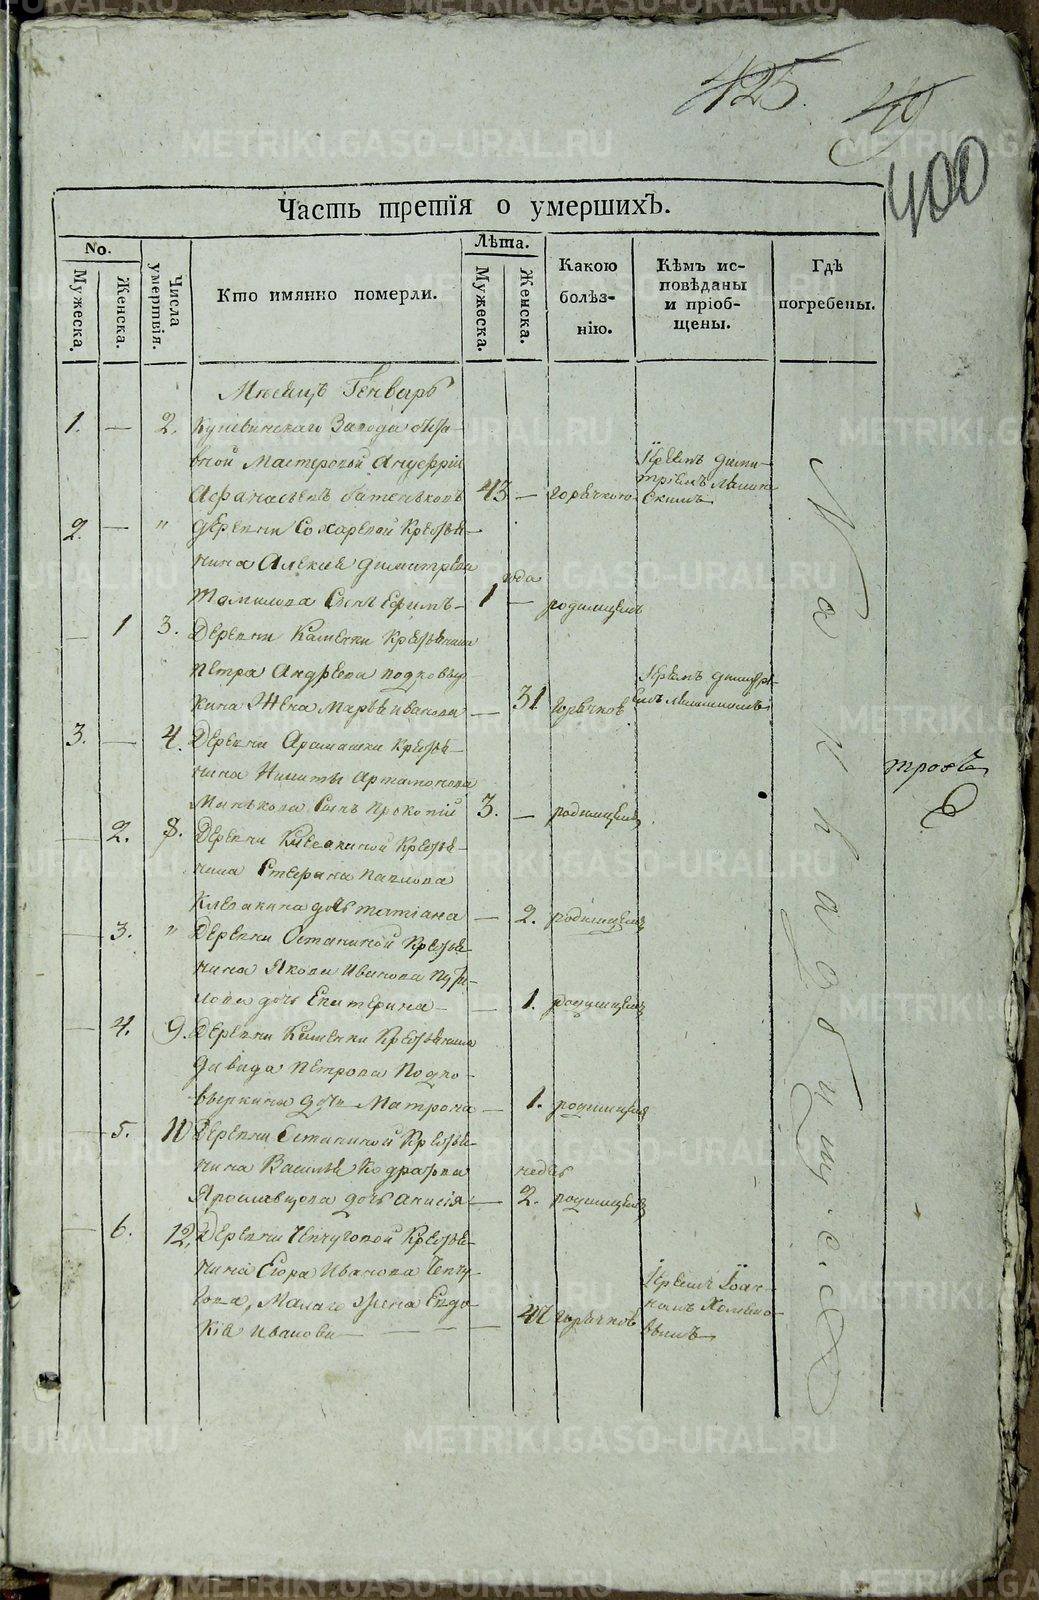 425.
49
400
Часть третїя о умершихъ.
No.
Мужеска.
Женска.
Числа умертвїя.
Кто имянно померли.
Лѣта.
Мужеска.
Женска.
Какою болѣз- нїю.
Кѣмъ ис- повѣданы и прїоб- щены.
Гдѣ погребены.
Мѣсяцъ Генварь
1. — 2. Кушвинскаго Завода
вной Мастеровой Андрей
43 — горячкою
Иереемъ Дими-
2. — " Деревни Сохаревой Кресть-
нина Алексея Димитрева
Томилова Сынъ Ефимъ — 1 года — родимцемъ
— 1 3. Деревни Каменки Крестьянина
Петра Андреева Подковыр-
кина Жена Марья Иванова — 31 горячкою
Иереемъ Димитрі-
3. — 4. Деревни Арамашки Крестья-
нина Никиты Артамонова
Манькова Сынъ Прокопій 3. — родимцемъ
— 2. 8. Деревни Клевакиной Крестья-
нина Стефана Павлова
Клевакина дочь Татіана — 2. родимцемъ
— 3. " Деревни Останиной Крестья-
нина Якова Иванова
лова дочь Екатерина — 1. родимцемъ
— 4. 9. Деревни Каменки Крестьянина
Давида Петрова Подко-
выркина дочь Матрона — 1. родимцемъ
— 5. 11 Деревни Останиной Крестья-
нина Василья
Ярославцова дочь Анисія — недѣль 2. родимцемъ
— 6. 12. Деревни Чепчуговой Крестья-
нина Егора Иванова Чепчу-
гова, Малаго Жена Евдо-
кія Иванова — 47 горячкою
Иереемъ Іоан-
номъ
На кладбищах
METRIKI.GASO-URAL.RU